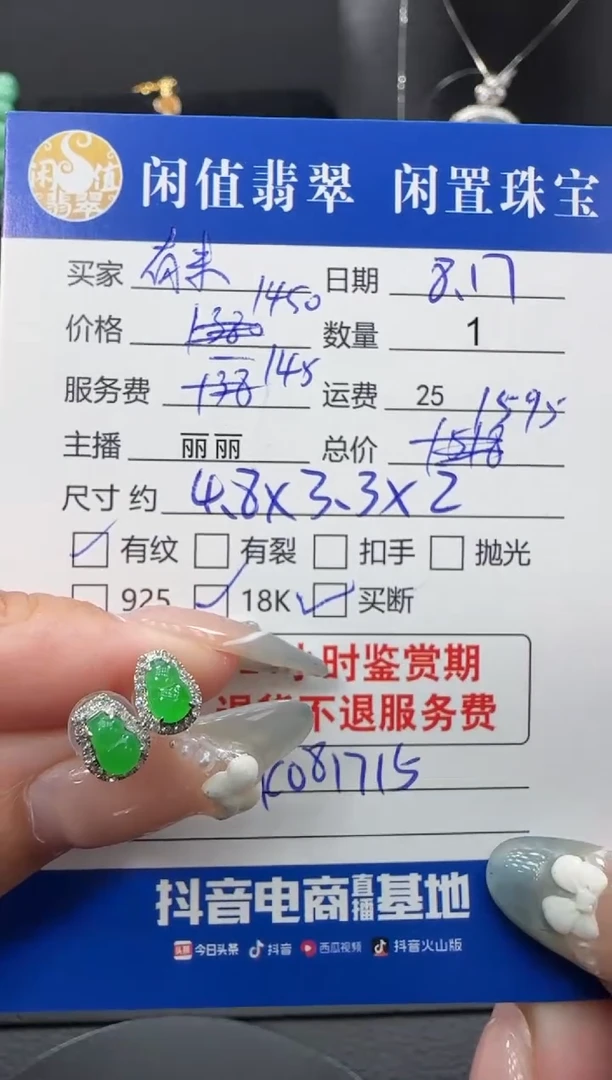 闲值翡翠 闲值翡翠 闲置珠宝
买家 有来 日期 8.17
价格 1380 1450 数量 1
服务费 138 145 运费 25
主播 丽丽 总价 1518 1595
尺寸 约 4.8x3.3x2
有纹 有裂 扣手 抛光
925 18K 买断
小时鉴赏期
退货不退服务费
081715
抖音电商直播基地
头条 今日头条 抖音 西瓜视频 抖音火山版